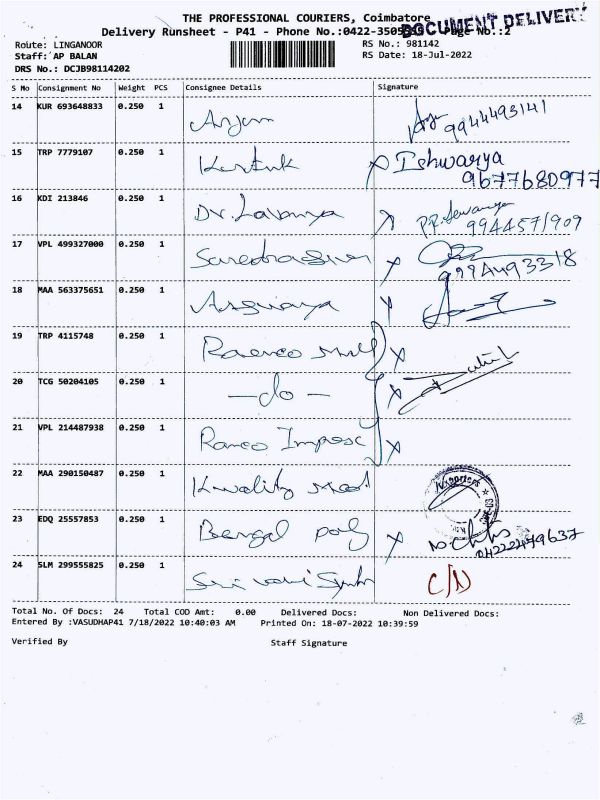 THE PROFESSIONAL COURIERS, Coimbatore
DOCUMENT DELIVERY
Delivery Runsheet - P41 - Phone No.:0422-3505 Page No.:2
Route: LINGANOOR RS No.: 981142
Staff: AP BALAN RS Date: 18-Jul-2022
DRS No.: DCJB98114202
S No Consignment No Weight PCS Consignee Details Signature
14 KUR 693648833 0.250 1 Arjun 9944493141
15 TRP 7779107 0.250 1 Kartik Ishwarya
9677680977
16 KDI 213846 0.250 1 Dr. Lavanya P.R.
9944571909
17 VPL 499327000 0.250 1
9994493318
18 MAA 563375651 0.250 1
19 TRP 4115748 0.250 1
20 TCG 50204105 0.250 1 -do-
21 VPL 214487938 0.250 1 Ranco Impex
22 MAA 290150487 0.250 1 Kwality
23 EDQ 25557853 0.250 1 Bengal poly
04222479637
24 SLM 299555825 0.250 1 Sri vari C/D
Total No. Of Docs: 24 Total COD Amt: 0.00 Delivered Docs: Non Delivered Docs:
Entered By :VASUDHAP41 7/18/2022 10:40:03 AM Printed On: 18-07-2022 10:39:59
Verified By Staff Signature